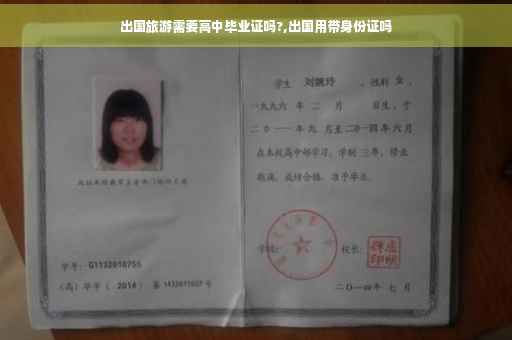 出国旅游需要高中毕业证吗?,出国用带身份证吗
学生 刘婉玲 ,性别 女 ,
一九九六 年 二 月 日生,于
二〇一一年九 月至二〇一四年六月
在本校高中部学习,学制 三年,修业
期满,成绩合格,准予毕业。
学号: G1132010755
(高)毕字( 2014 )第 1432011027 号
学校:
校长:
二〇一四年 七 月